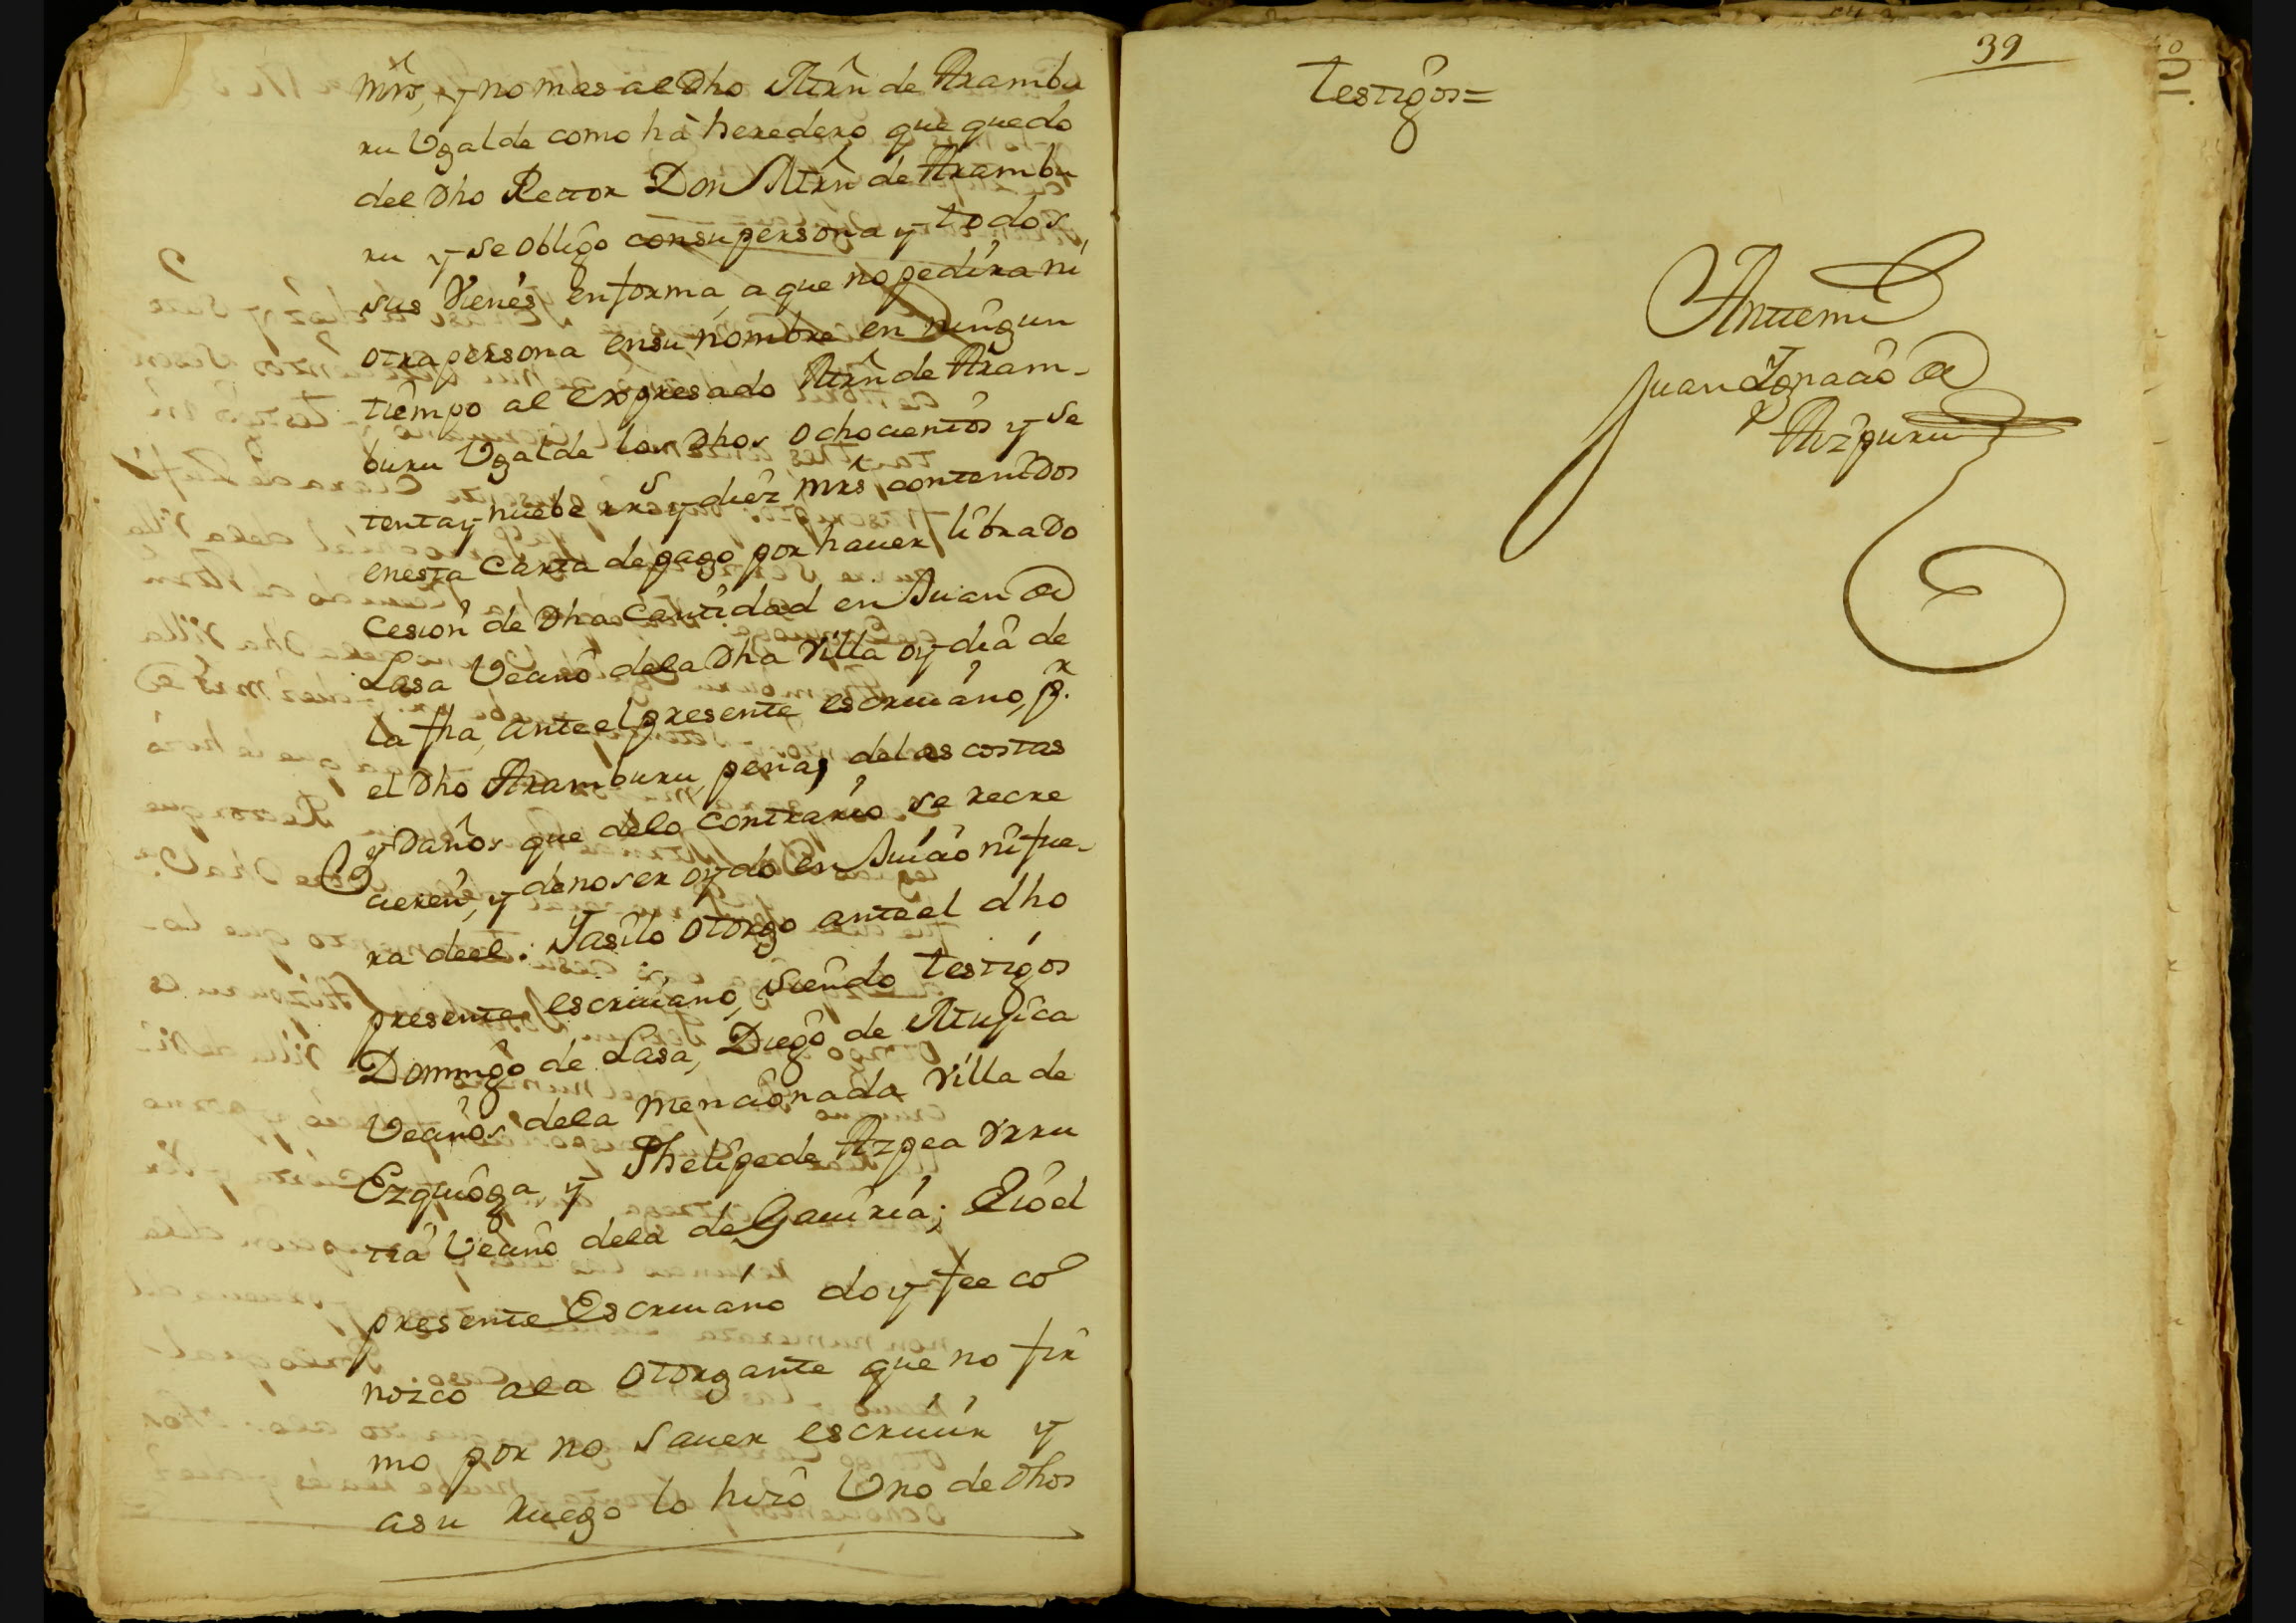 mrs, y no mas al Dho Mrn de Arambu
ru Ugalde como há heredero que quedo
del Dho Rector Don Mrn de Arambu
ru y se obligo con su persona y todos
sus vienes en forma, a que no pedira ni
otra persona en su nombre en ningun
tiempo al expresado Mrn de Aram-
buru Ugalde los Dhos ochocientos y se
tenta y nuebe rrs y diez mrs contenidos
en esta Carta de pago por hauer librado
Cesion de Dha Cantidad en Juan de
Lasa Vecino de la Dha Villa oy dia de
la fha, ante el presente escriuano, pr.
el Dho Aramburu, pena, de las costas
y Daños que de lo contrario se recre
cieren, y de no ser oydo en Juicio ni fue-
ra de el. Y asilo otorgo ante el dho
presente escriuano, siendo testigos
Domingo de Lasa, Diego de Mugica
Vecinos de la mencionada Villa de
Ezquioga, y Phelipe de Azpea Vrru
tia Vecino de la de Gauiria; E io el
presente Escriuano doy fee co
nozco a la otorgante que no fir
mo por no sauer escriuir y
a su ruego lo hizo Uno de Dhos
39
testigos=
Antemi
Juan Ignacio de
Aizpuru